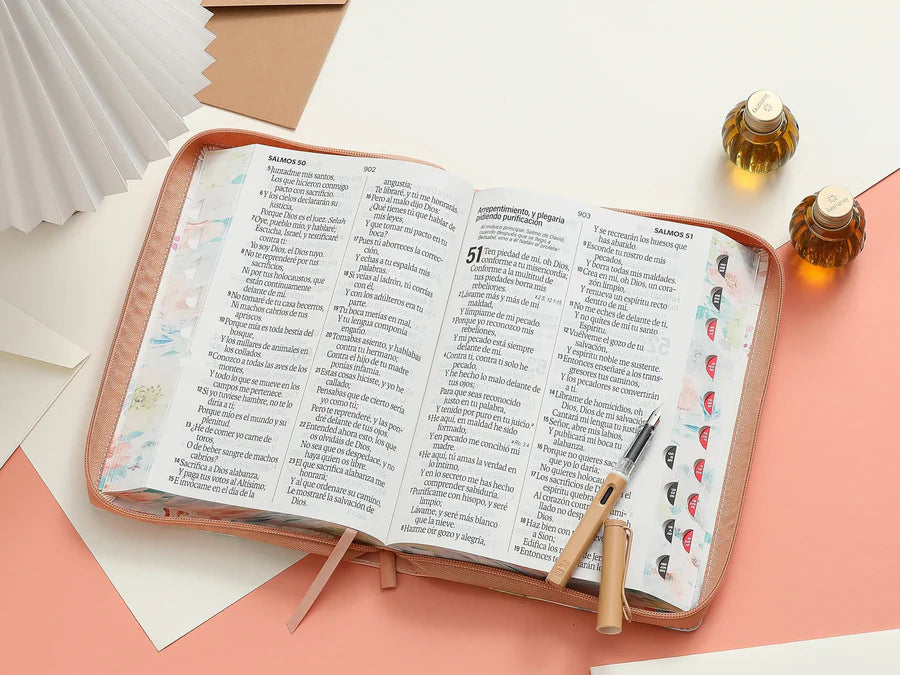 SALMOS 50
902
5 Juntadme mis santos,
Los que hicieron conmigo
pacto con sacrificio.
6 Y los cielos declararán su
justicia,
Porque Dios es el juez. Selah
7 Oye, pueblo mío, y hablaré;
Escucha, Israel, y testificaré
contra ti:
Yo soy Dios, el Dios tuyo.
8 No te reprenderé por tus
sacrificios,
Ni por tus holocaustos, que
están continuamente
delante de mí.
9 No tomaré de tu casa becerros,
Ni machos cabríos de tus
apriscos.
10 Porque mía es toda bestia del
bosque,
Y los millares de animales en
los collados.
11 Conozco a todas las aves de los
montes,
Y todo lo que se mueve en los
campos me pertenece.
12 Si yo tuviese hambre, no te lo
diría a ti;
Porque mío es el mundo y su
plenitud.
13 ¿He de comer yo carne de
toros,
O de beber sangre de machos
cabríos?
14 Sacrifica a Dios alabanza,
Y paga tus votos al Altísimo;
15 E invócame en el día de la
angustia;
Te libraré, y tú me honrarás.
16 Pero al malo dijo Dios:
¿Qué tienes tú que hablar de
mis leyes,
Y que tomar mi pacto en tu
boca?
17 Pues tú aborreces la correc-
ción,
Y echas a tu espalda mis
palabras.
18 Si veías al ladrón, tú corrías
con él,
Y con los adúlteros era tu
parte.
19 Tu boca metías en mal,
Y tu lengua componía
engaño.
20 Tomabas asiento, y hablabas
contra tu hermano;
Contra el hijo de tu madre
ponías infamia.
21 Estas cosas hiciste, y yo he
callado;
Pensabas que de cierto sería
yo como tú;
Pero te reprenderé, y las pon-
dré delante de tus ojos.
22 Entended ahora esto, los que
os olvidáis de Dios,
No sea que os despedace, y no
haya quien os libre.
23 El que sacrifica alabanza me
honrará;
Y al que ordenare su camino,
Le mostraré la salvación de
Dios.
903
SALMOS 51
Arrepentimiento, y plegaria
pidiendo purificación
Al músico principal. Salmo de David,
cuando después que se llegó a
Betsabé, vino a él Natán el profeta.
51 Ten piedad de mí, oh Dios,
conforme a tu misericordia;
Conforme a la multitud de
tus piedades borra mis
rebeliones.
2 Lávame más y más de mi
maldad,
Y límpiame de mi pecado.
3 Porque yo reconozco mis
rebeliones,
Y mi pecado está siempre
delante de mí.
4 Contra ti, contra ti solo he
pecado,
Y he hecho lo malo delante de
tus ojos;
Para que seas reconocido
justo en tu palabra,
Y tenido por puro en tu juicio.
5 He aquí, en maldad he sido
formado,
Y en pecado me concibió mi
madre.
6 He aquí, tú amas la verdad en
lo íntimo,
Y en lo secreto me has hecho
comprender sabiduría.
7 Purifícame con hisopo, y seré
limpio;
Lávame, y seré más blanco
que la nieve.
8 Hazme oír gozo y alegría,
Y se recrearán los huesos que
has abatido.
9 Esconde tu rostro de mis
pecados,
Y borra todas mis maldades.
10 Crea en mí, oh Dios, un cora-
zón limpio,
Y renueva un espíritu recto
dentro de mí.
11 No me eches de delante de ti,
Y no quites de mí tu santo
Espíritu.
12 Vuélveme el gozo de tu
salvación,
Y espíritu noble me sustente.
13 Entonces enseñaré a los trans-
gresores tus caminos,
Y los pecadores se convertirán
a ti.
14 Líbrame de homicidios, oh
Dios, Dios de mi salvación;
Cantará mi lengua tu justicia.
15 Señor, abre mis labios,
Y publicará mi boca tu
alabanza.
16 Porque no quieres sac
que yo lo daría;
No quieres holocau
17 Los sacrificios de D
espíritu quebra
Al corazón contr
llado no despre
18 Haz bien con
a Sion;
Edifica los m de Jer
19 Entonces te arán lo